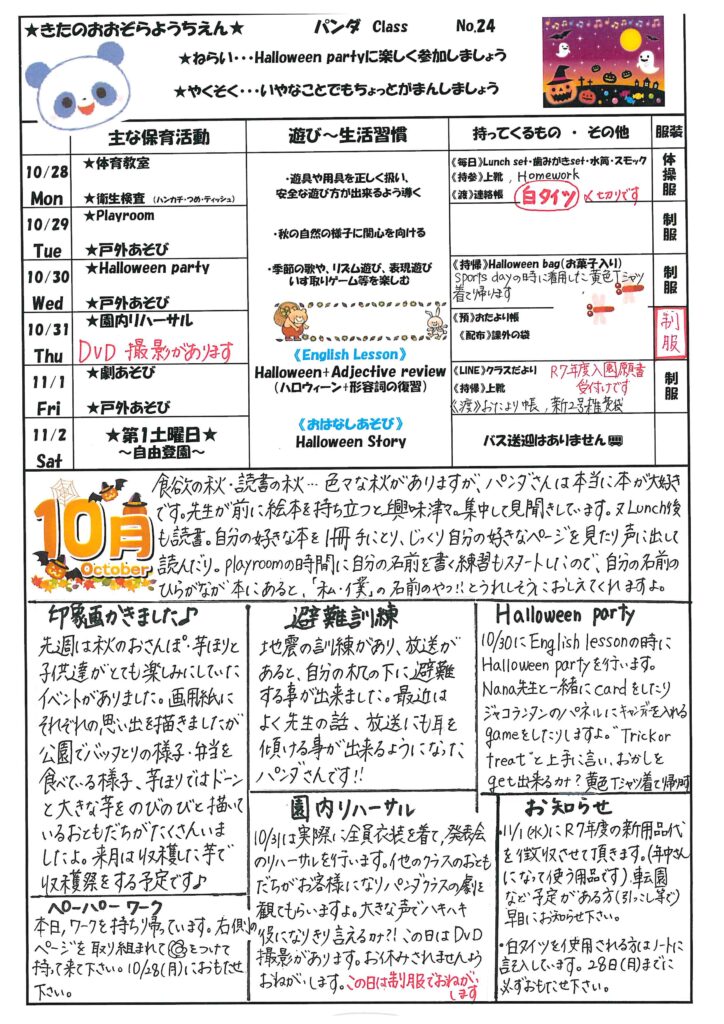 ★きたのおおぞらようちえん★ パンダ Class No,24
★ねらい・・・Halloween partyに楽しく参加しましょう
★やくそく・・・いやなことでもちょっとがまんしましょう
主な保育活動 遊び～生活習慣 持ってくるもの ・ その他 服装
10/28
Mon
★体育教室
★衛生検査 (ハンカチ・つめ・ティッシュ)
・遊具や用具を正しく扱い、
安全な遊び方が出来るよう導く
《毎日》Lunch set・歯みがきset・水筒・スモック
《持参》上靴, Homework
《渡》連絡帳 白タイツ 〆切りです
体操服
10/29
Tue
★Playroom
★戸外あそび
・秋の自然の様子に関心を向ける
制服
10/30
Wed
★Halloween party
★戸外あそび
・季節の歌や、リズム遊び、表現遊び
いす取りゲーム等を楽しむ
《持帰》Halloween bag(お菓子入り)
Sports dayの時に着用した黄色Tシャツ
着て帰ります
制服
10/31
Thu
★園内リハーサル
DVD 撮影があります
《預》おたより帳
《配布》課外の袋
制服
《English Lesson》
Halloween+Adjective review
(ハロウィーン+形容詞の復習)
11/1
Fri
★劇あそび
★戸外あそび
《LINE》クラスだより R7年度入園願書
《持帰》上靴 受付けです
《渡》おたより帳, 新2号雑費袋
制服
11/2
Sat
★第1土曜日★
～自由登園～
《おはなしあそび》
Halloween Story
バス送迎はありません
10月
October
食欲の秋・読書の秋…色々な秋がありますが、パンダさんは本当に本が大好き
です。先生が前に絵本を持ち立つと興味津々。集中して見聞きしています。又Lunch後
も読書。自分の好きな本を1冊手にとり、じっくり自分の好きなページを見たり声に出して
読んだり。Playroomの時間に自分の名前を書く練習もスタートしたので、自分の名前の
ひらがなが本にあると、「私・僕」の名前のやつ!!とうれしそうにおしえてくれますよ。
印象画かきました♪
先週は秋のおさんぽ・芋ほりと
子供達がとても楽しみにしていた
イベントがありました。画用紙に
それぞれの思い出を描きましたが
公園でバッタとりの様子・弁当を
食べている様子、芋ほりではドーン
と大きな芋をのびのびと描いて
いるおともだちがたくさんいま
したよ。来月は収穫した芋で
収穫祭をする予定です♪
ペーパーワーク
本日,ワークを持ち帰っています。右側の
ページを取り組まれて◎をつけて
持って来て下さい。10/28(月)におもたせ
下さい。
避難訓練
地震の訓練があり、放送が
あると、自分の机の下に避難
する事が出来ました。最近は
よく先生の話、放送にも耳を
傾ける事が出来るようになった
パンダさんです!!
園内リハーサル
10/31は実際に全員衣装を着て,発表会
のリハーサルを行います。他のクラスのおとも
だちがお客様になりパンダクラスの劇を
観てもらいますよ。大きな声でハキハキ
役になりきり言えるカナ?! この日はDVD
撮影があります。お休みされませんよう
おねがいします。この日は制服でおねがい
します
Halloween party
10/30にEnglish lessonの時に
Halloween partyを行います。
Nana先生と一緒にcardをしたり
ジャコランタンのパネルにキャンディを入れる
gameをしたりしますよ。"Trick or
treat"と上手に言い、おかしを
get出来るカナ? 黄色Tシャツ着て帰ります
お知らせ
・11/1(水)にR7年度の新用品代
を徴収させて頂きます。(年中さん
になって使う用品です)、転園
など予定がある方(引っこし等で)
早目にお知らせ下さい。
・白タイツを使用される方はノートに
記入しています。28日(月)までに
必ずおもたせ下さい。